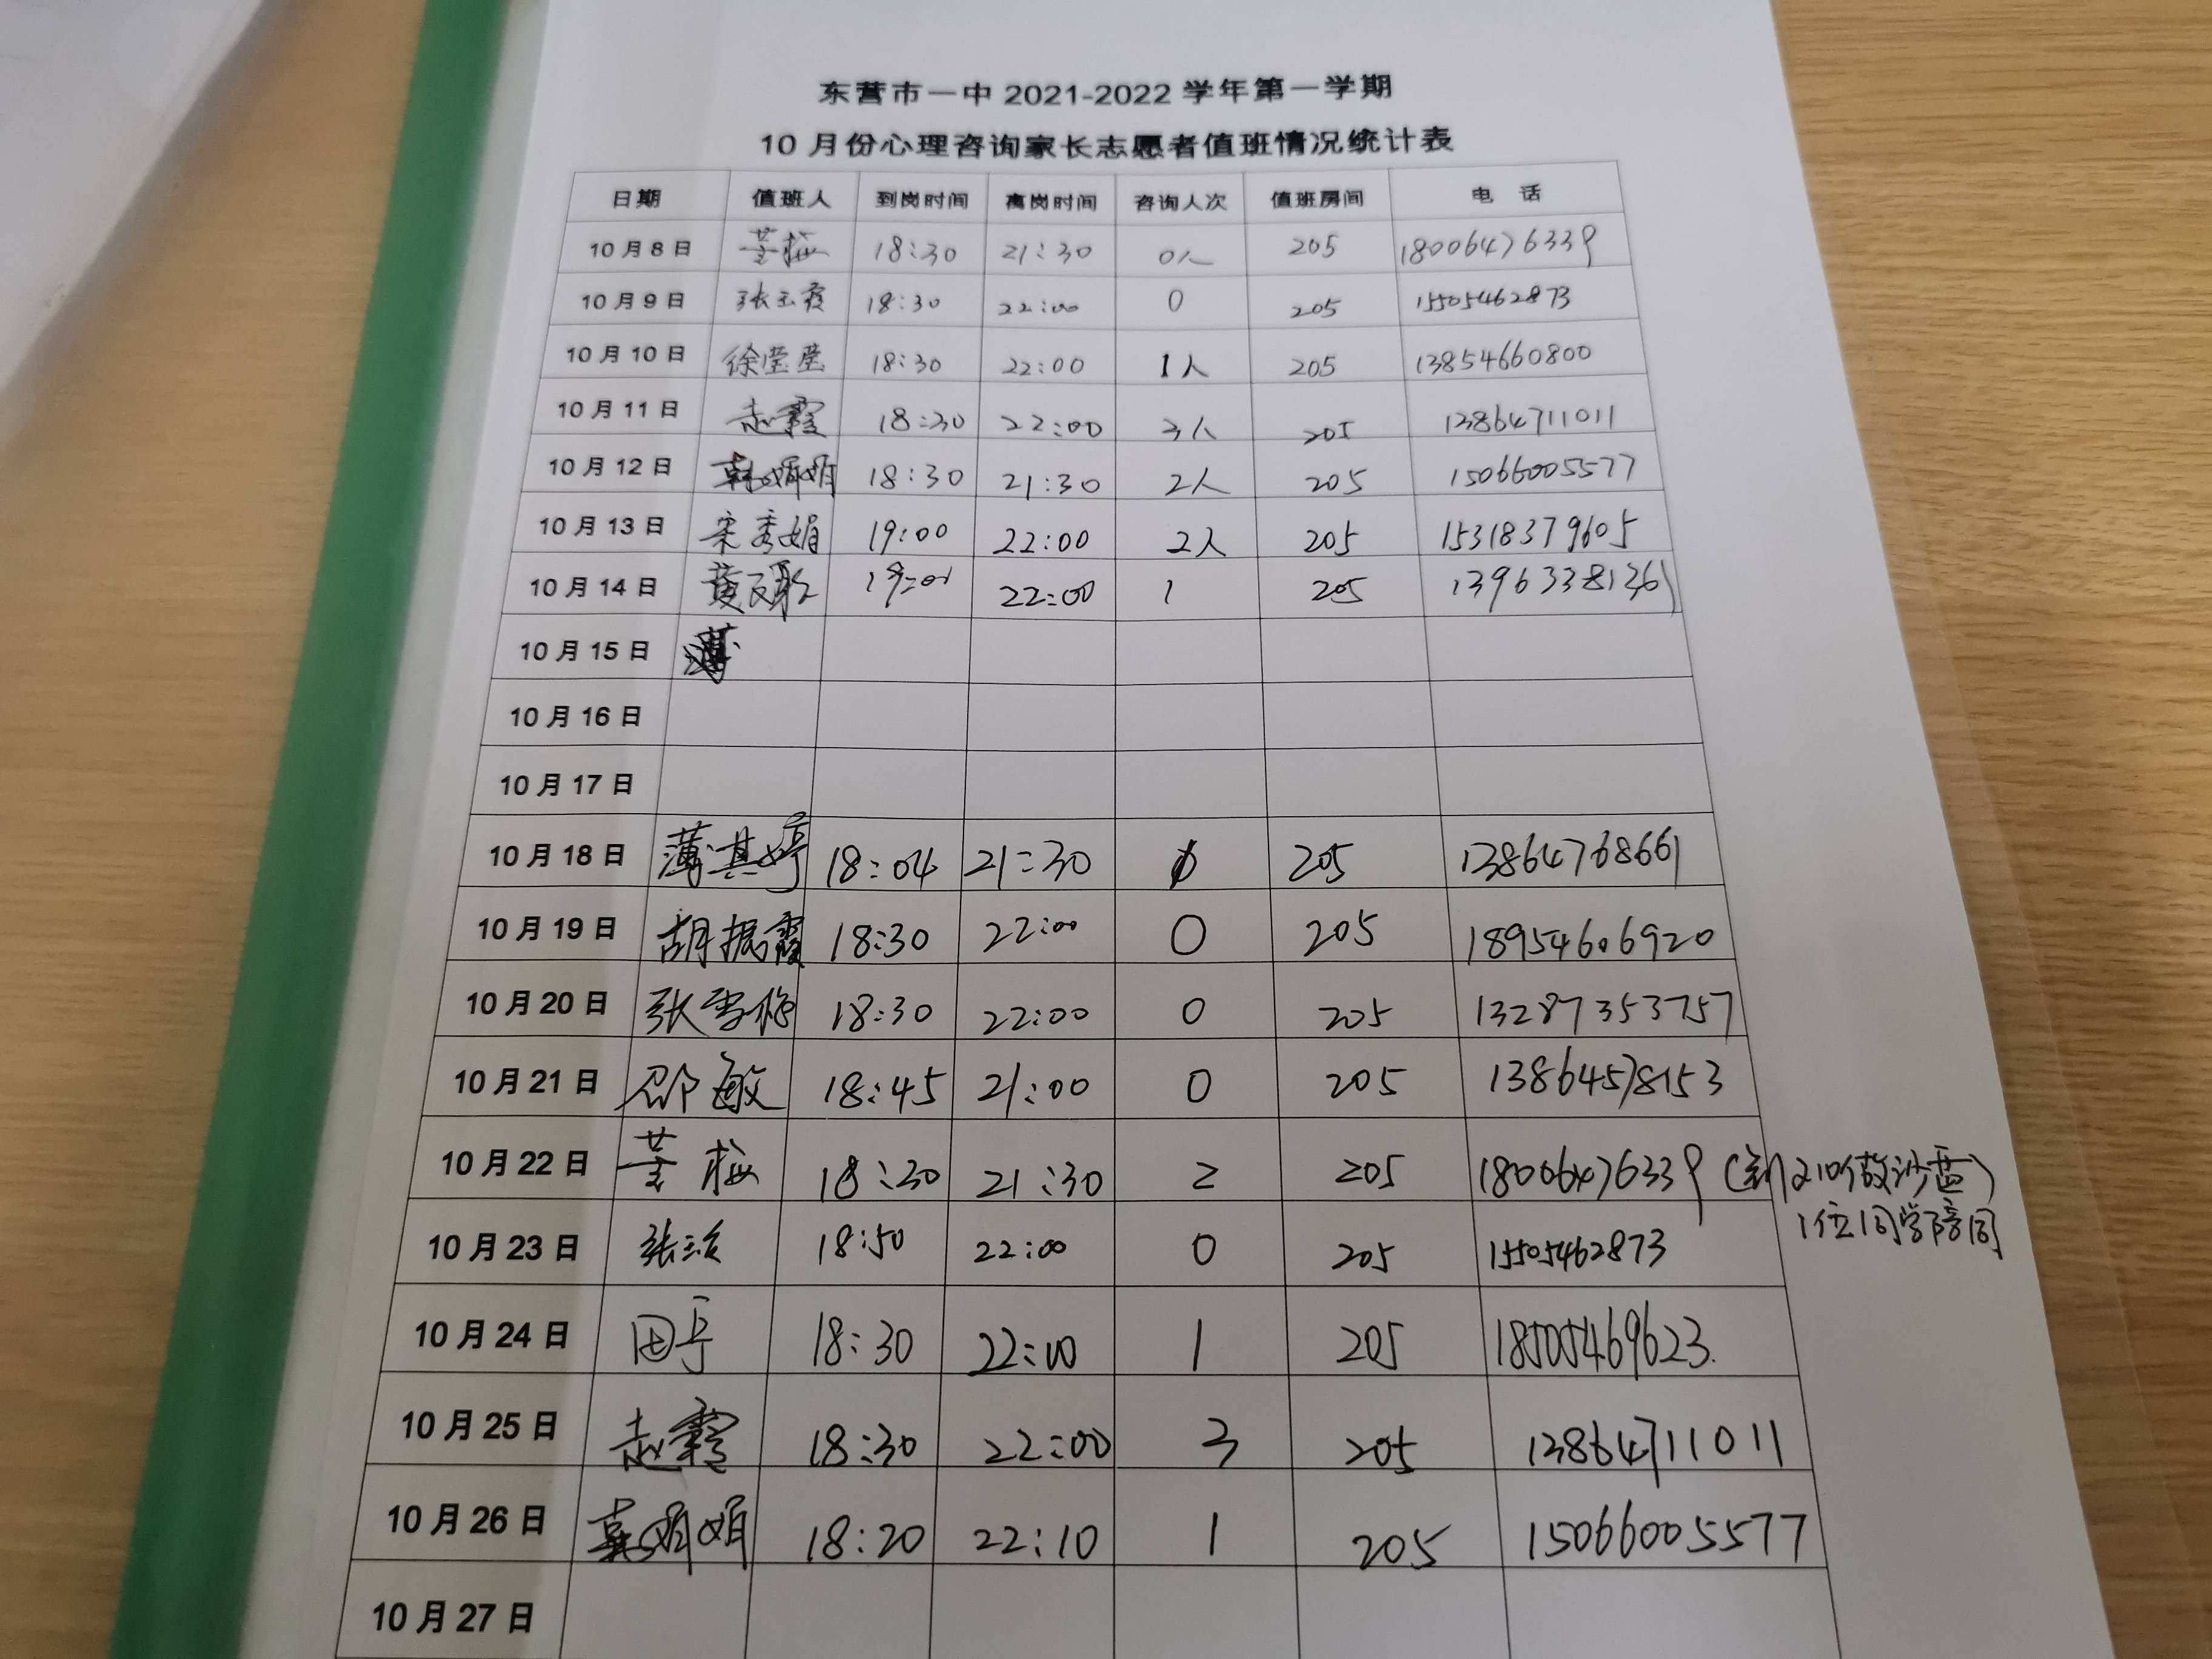 东营市一中 2021-2022 学年第一学期
10 月份心理咨询家长志愿者值班情况统计表
日期 值班人 到岗时间 离岗时间 咨询人次 值班房间 电 话
10 月 8 日 董梅 18:30 21:30 0人 205 18006476339
10 月 9 日 张玉霞 18:30 22:00 0 205 15505462873
10 月 10 日 徐莹莹 18:30 22:00 1人 205 13854660800
10 月 11 日 赵霞 18:30 22:00 3人 205 13864711011
10 月 12 日 韩娟娟 18:30 21:30 2人 205 15066005577
10 月 13 日 宋秀娟 19:00 22:00 2人 205 15318379605
10 月 14 日 19:01 22:00 1 205
10 月 15 日
10 月 16 日
10 月 17 日
10 月 18 日 薄其婷 18:04 21:30 0 205 13864768661
10 月 19 日 胡振霞 18:30 22:00 0 205 18954606920
10 月 20 日 张雪梅 18:30 22:00 0 205 13287353757
10 月 21 日 邵敏 18:45 21:00 0 205 13864578153
10 月 22 日 董梅 18:30 21:30 2 205 18006476339 (到210做沙盘)
1位同学陪同
10 月 23 日 18:50 22:00 0 205 15505462873
10 月 24 日 田宁 18:30 22:00 1 205 18505469623.
10 月 25 日 赵霞 18:30 22:00 3 205 13864711011
10 月 26 日 韩娟娟 18:20 22:10 1 205 15066005577
10 月 27 日